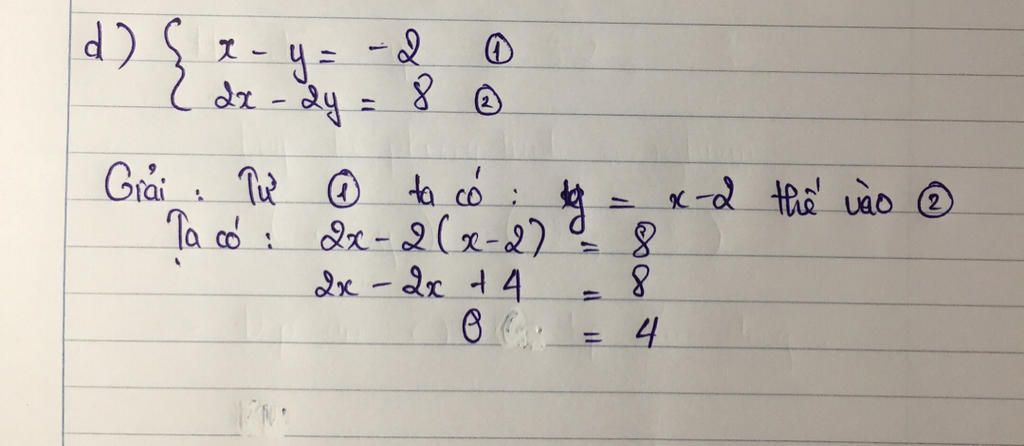 d) { x - y = -2 ①
2x - 2y = 8 ②
Giải : Từ ① ta có : y = x-2 thế vào ②
Ta có : 2x - 2(x-2) = 8
2x - 2x + 4 = 8
0 = 4